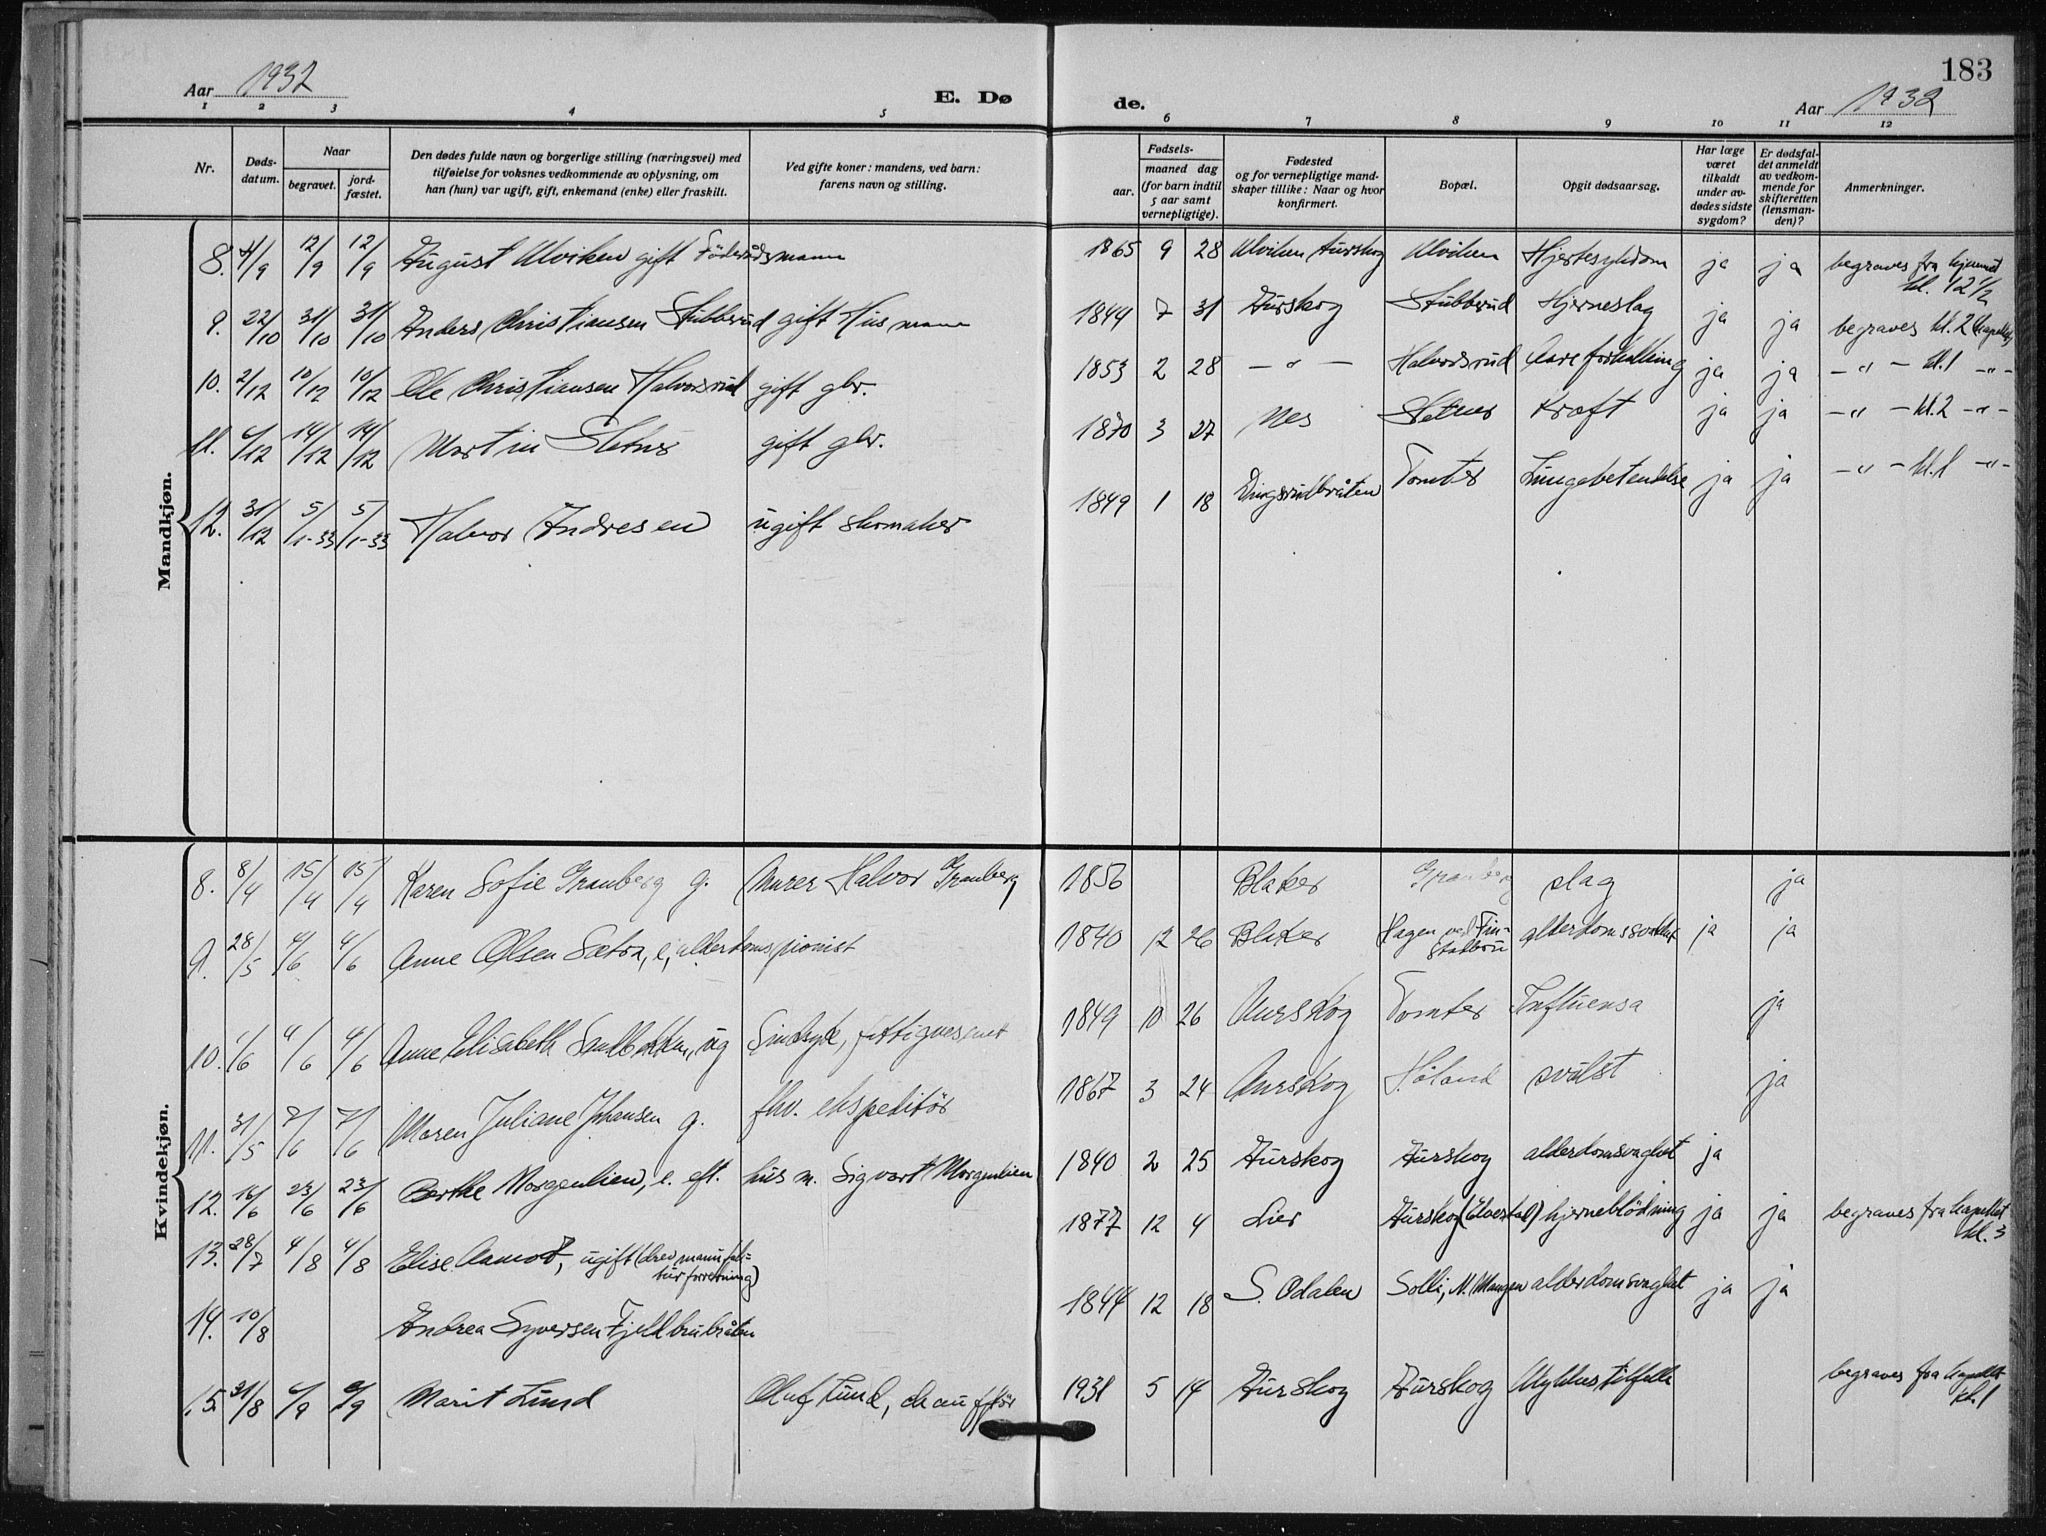 183
Aar 1932
E. Dø
de.
Aar 1932
1 2 3 4 5 6 7 8 9 10 11 12
Nr.
Døds-datum.
Naar
begravet.
jord-fæstet.
Den dødes fulde navn og borgerlige stilling (næringsvei) med
tilføielse for voksnes vedkommende av oplysning, om
han (hun) var ugift, gift, enkemand (enke) eller fraskilt.
Ved gifte koner: mandens, ved barn:
farens navn og stilling.
Fødsels-
aar.
maaned dag
(for barn indtil
5 aar samt
vernepligtige).
Fødested
og for vernepligtige mand-
skaper tillike: Naar og hvor
konfirmert.
Bopæl.
Opgit dødsaarsag.
Har læge
været
tilkaldt
under av-
dødes sidste
sygdom?
Er dødsfal-
det anmeldt
av vedkom-
mende for
skifteretten
(lensman-
den)?
Anmerkninger.
Mandkjøn.
8. 4/9 12/9 12/9 August Ulviken gift Föderådsmann 1865 9 28 Ulviken Aurskog Ulviken Hjertesykdom ja ja begraves fra hjemmet kl. 12 1/2
9. 22/10 31/10 31/10 Anders Christiansen Stubberud gift Husmann 1844 7 31 Aurskog Stubberud Hjerneslag ja ja begraves kl. 2 kapellet
10. 2/12 10/12 10/12 Ole Christiansen Halvorsrud gift gbr. 1853 2 28 — " — Halvorsrud Aareforkalkning ja ja — " — kl. 1 — " —
11. 6/12 14/12 14/12 Martin Sletner gift gbr. 1870 3 27 Nes Sletner Kræft ja ja — " — kl. 2 — " —
12. 31/12 5/1-33 5/1-33 Halvor Andresen ugift skomaker 1849 1 18 Dingsrudbråten Tomter Lungebetendelse ja ja — " — kl. 1 — " —
Kvindekjøn.
8. 8/4 15/4 15/4 Karen Sofie Granberg g. Murer Halvor Granberg 1856 Blaker Granberg slag ja
9. 28/5 4/6 4/6 Anne Olsen Sætra, e, alderdomspionist 1840 12 26 Blaker Hagen ved Finstadbru alderdomssvakhet ja ja
10. 1/6 4/6 4/6 Anne Elisabeth ug Sindsyk, fattigvesenet 1849 10 26 Aurskog Tomter Influensa ja
11. 31/5 7/6 7/6 Maren Juliane Johansen g. fhv. ekspeditör 1867 3 24 Aurskog Höland svulst ja
12. 16/6 23/6 23/6 Berthe Morgenlien, e. eft. husm. Sigvart Morgenlien 1840 2 25 Aurskog Aurskog alderdomsvaghet ja
13. 28/7 4/8 4/8 Elise Aamot, ugift (drev manufakturforretning) 1877 12 4 Lier Aurskog (Elvestad) hjerneblödning ja ja begraves fra kapellet kl. 3
14. 10/8 Andrea Syversen Fjellbrubråten 1844 12 18 S. Odalen Solli, N. Mangen alderdomsvaghet ja ja
15. 31/8 6/9 6/9 Marit Lund Oluf Lund, chaufför 1931 5 14 Aurskog Aurskog Ulykkestilfelle begraves fra kapellet kl. 1